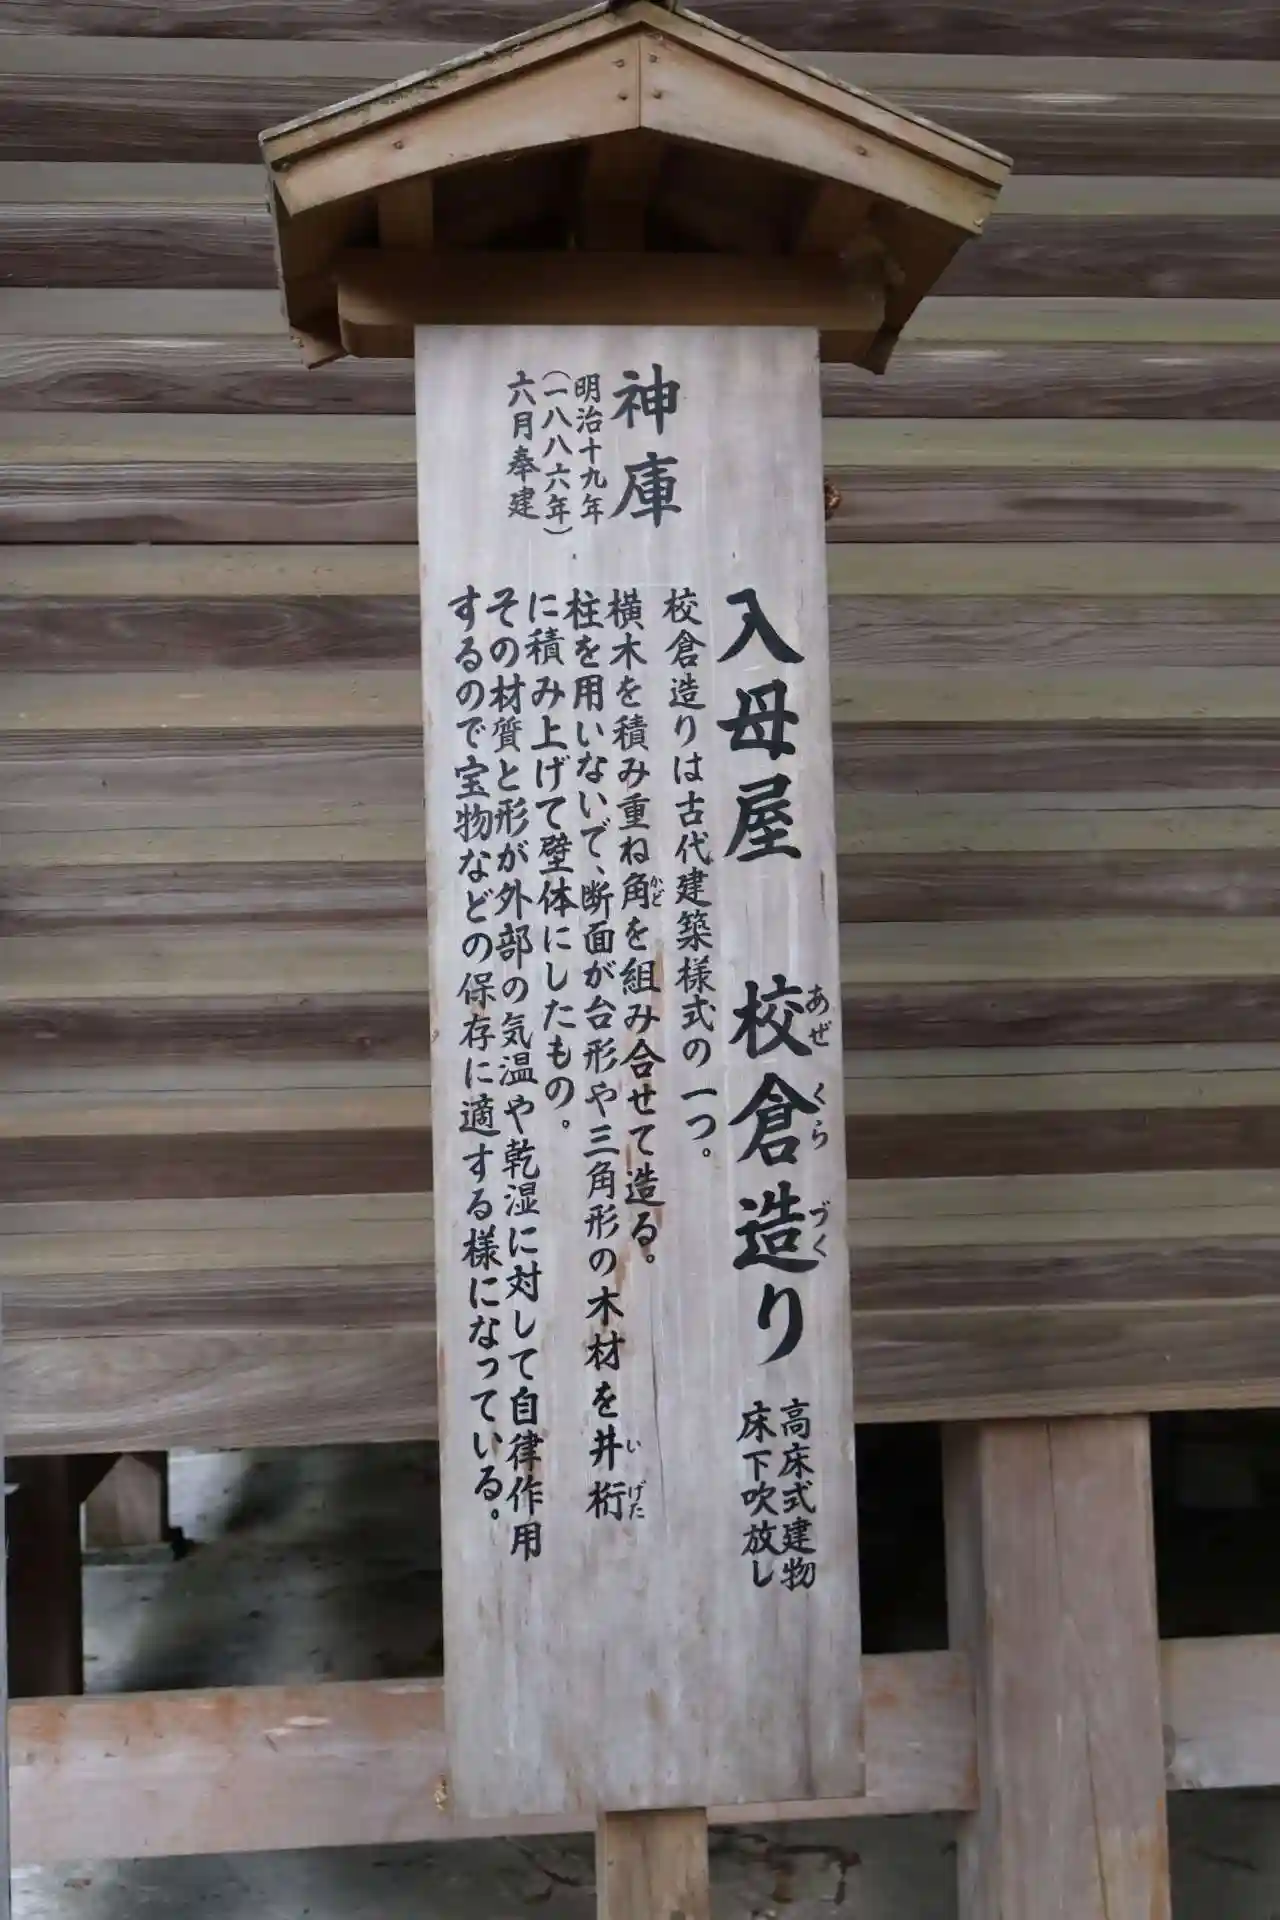 神庫
明治十九年
(一八八六年)
六月奉建
入母屋 校倉造り
あぜ くら づく
高床式建物
床下吹放し
校倉造りは古代建築様式の一つ。
横木を積み重ね角を組み合せて造る。
かど
柱を用いないで、断面が台形や三角形の木材を井桁
い げた
に積み上げて壁体にしたもの。
その材質と形が外部の気温や乾湿に対して自律作用
するので宝物などの保存に適する様になっている。